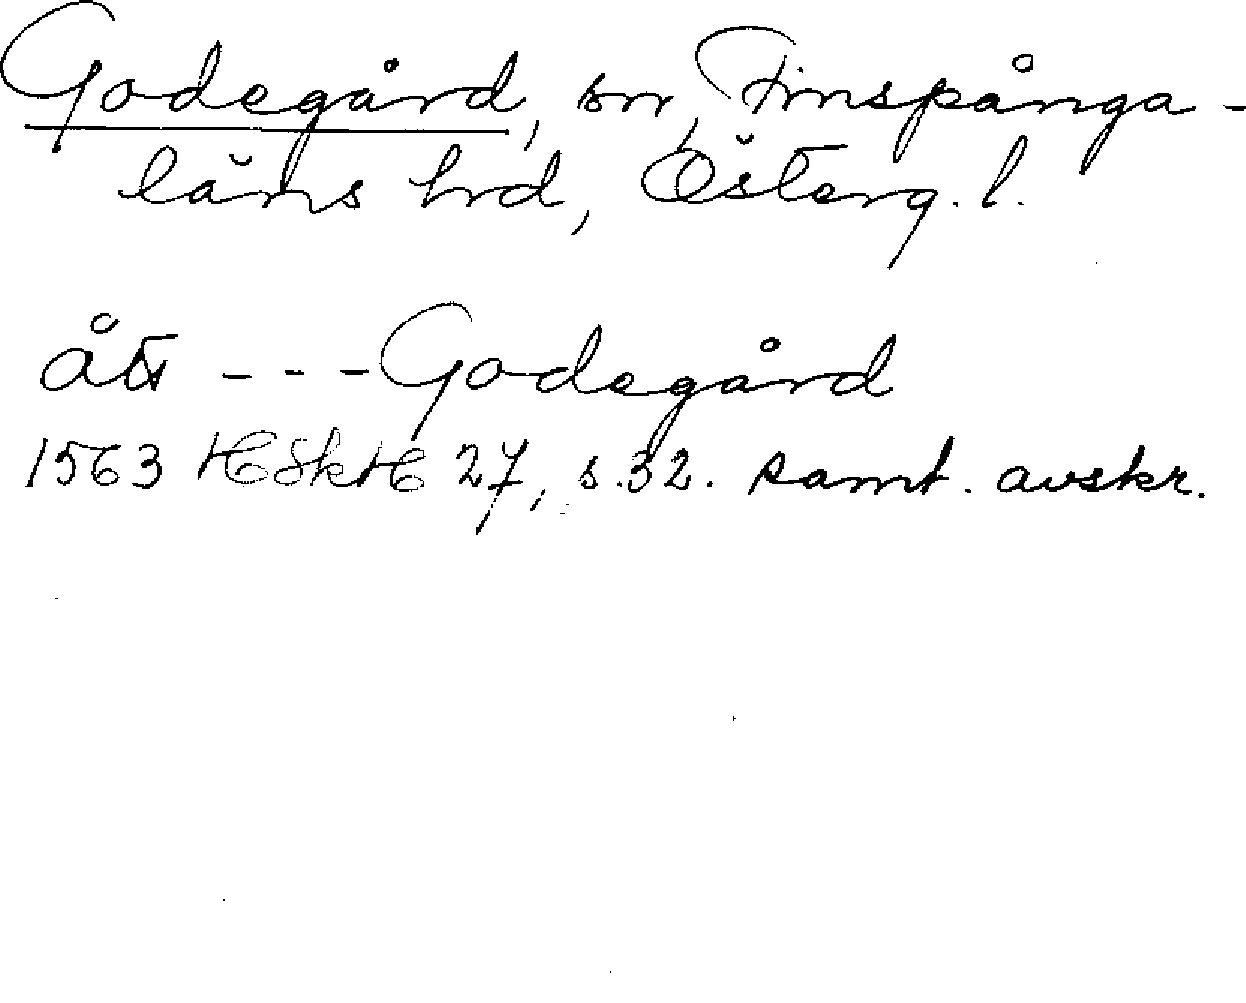 Godegård, sn, Finspånga-
läns hrd, Österg. l.
ått --- Godegård
1563 HSkH 27, s. 32. samt. avskr.